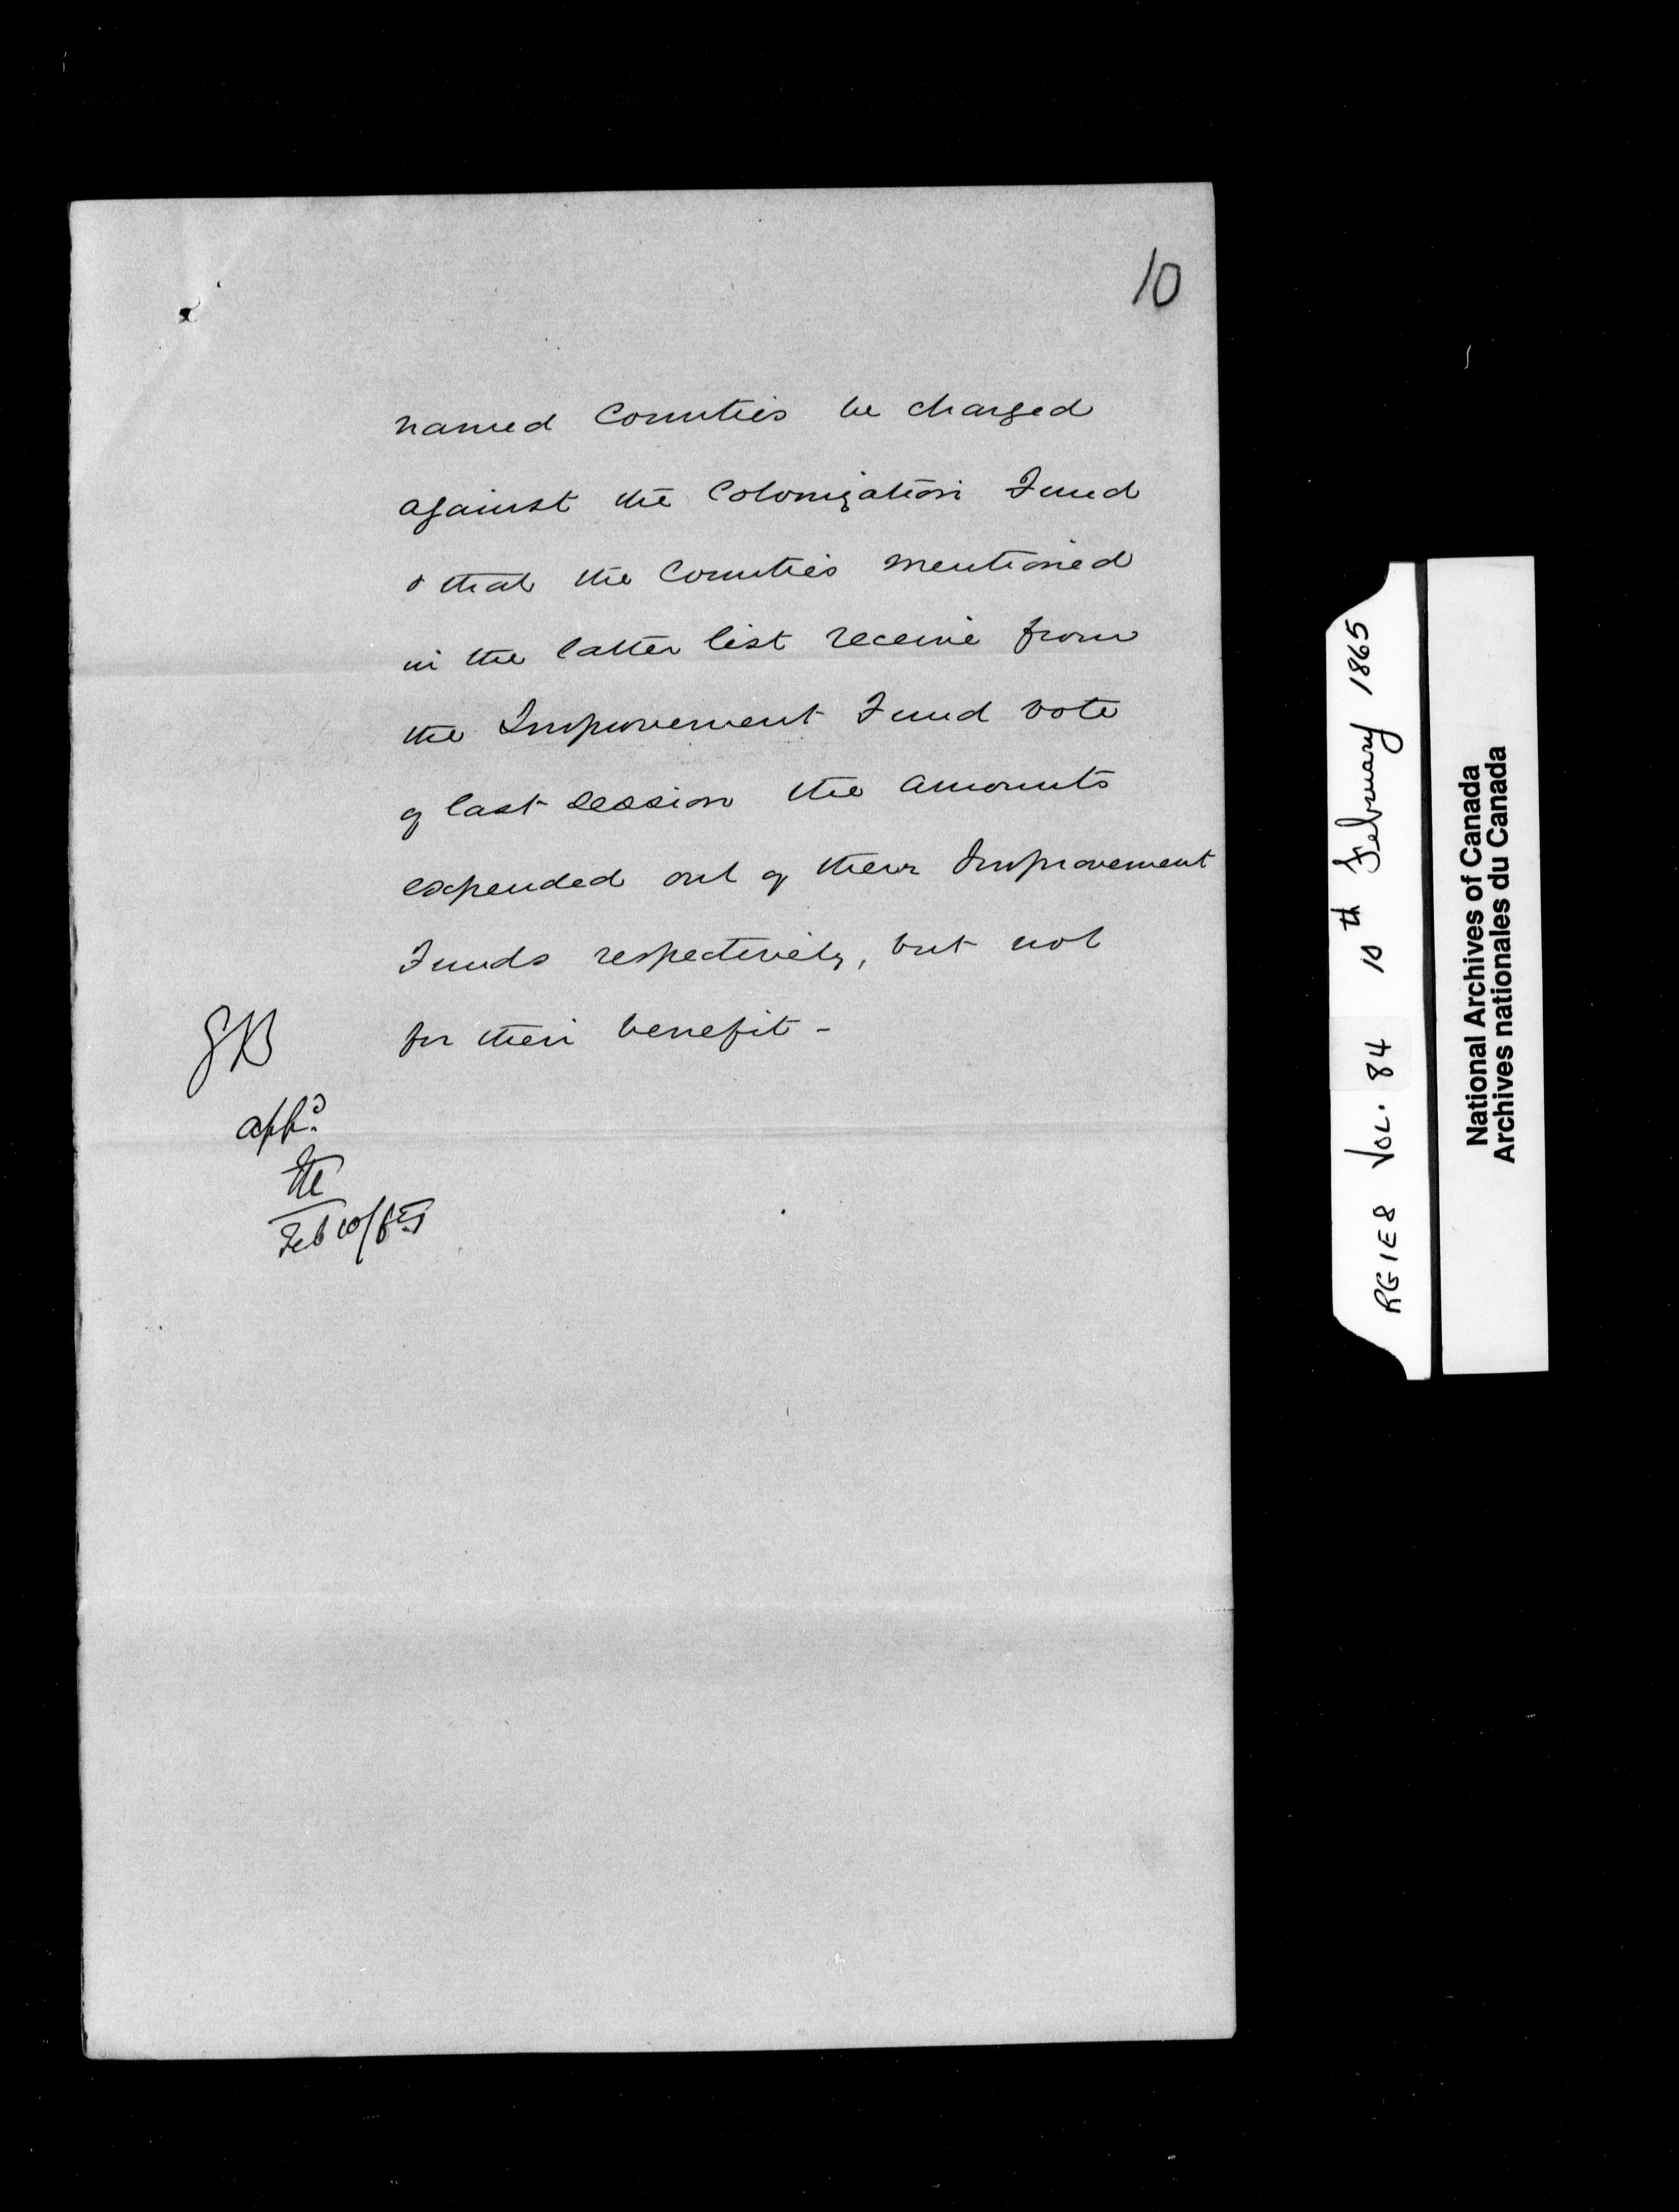 10
named Counties be charged
against the Colonization Fund
& that the Counties mentioned
in the latter list receive from
the Improvement Fund vote
of last session the amounts
expended out of their Improvement
Funds respectively, but not
for their benefit -
GB
appd.
Feb 10/65
RG1E8 VOL. 84 10th February 1865
National Archives of Canada
Archives nationales du Canada